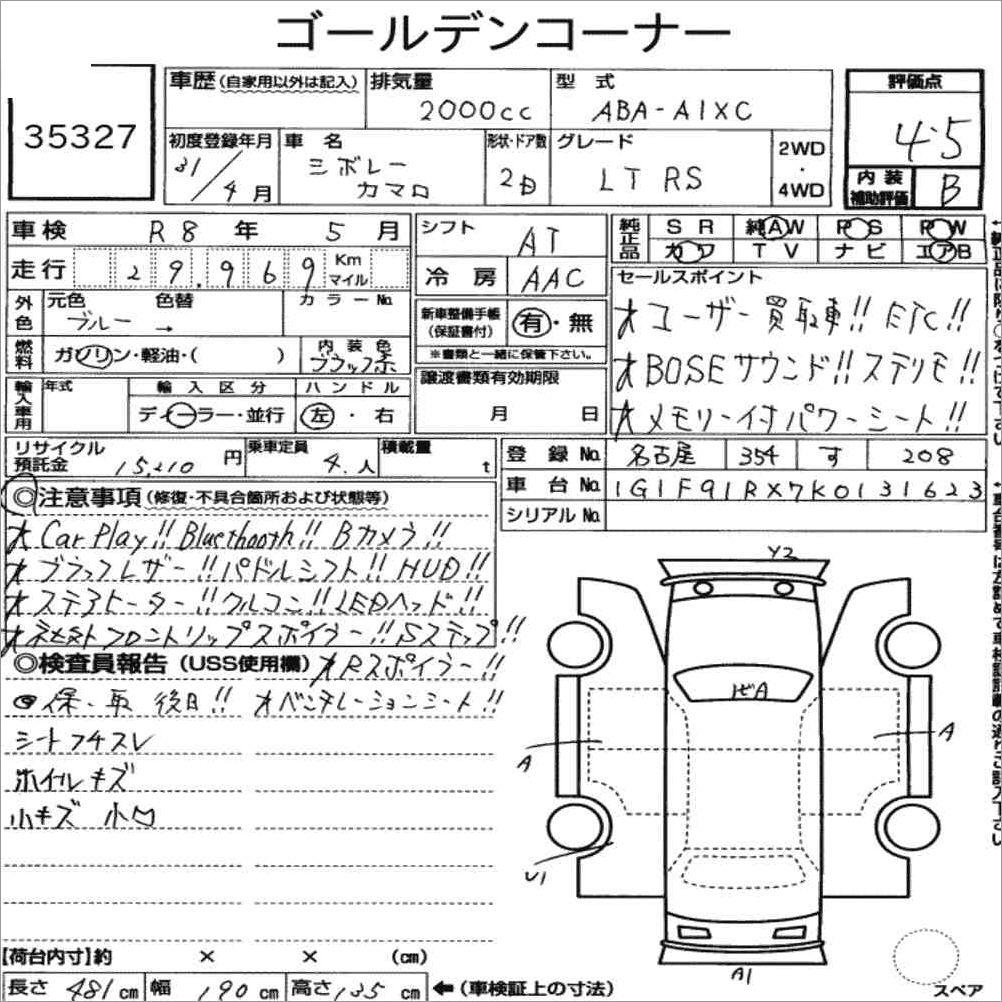 ゴールデンコーナー
35327
車歴(自家用以外は記入) 排気量 2000cc 型式 ABA-A1XC 評価点 4.5
初度登録年月 31/4月 車名 シボレー カマロ 形状・ドア数 2D グレード LT RS 2WD・4WD 内装補助評価 B
車検 R8年 5月 シフト AT 純正品 SR 純AW PS PW
カワ TV ナビ エアB
走行 29,969 Km マイル 冷房 AAC
外色 元色 ブルー 色替 → カラーNo.
新車整備手帳(保証書付) 有・無
※書類と一緒に保管下さい。
燃料 ガソリン・軽油・( ) 内装色 ブラック系
輸入車用 年式 輸入区分 ディーラー・並行 ハンドル 左・右
譲渡書類有効期限 月 日
セールスポイント
★ユーザー買取車!! ETC!!
★BOSEサウンド!! ステリモ!!
★メモリー付パワーシート!!
リサイクル預託金 15,210円 乗車定員 4.人 積載量 t
登録No. 名古屋 354 す 208
車台No. 1G1F91RX7K0131623
シリアルNo.
◎注意事項(修復・不具合箇所および状態等)
★Car Play!! Bluethooth!! Bカメラ!!
★ブラックレザー!! パドルシフト!! HUD!!
★ステアヒーター!! クルコン!! LEDヘッド!!
★社外フロントリップスポイラー!! Sステップ!!
◎検査員報告(USS使用欄) ★Rスポイラー!!
保・取 後日!! ★ベンチレーションシート!!
シートフチスレ
ホイルキズ
小キズ 小凹
Y2
飛A
A
A
U1
A1
スペア
【荷台内寸】約 × × (cm)
長さ 481cm 幅 190cm 高さ 135cm ←(車検証上の寸法)